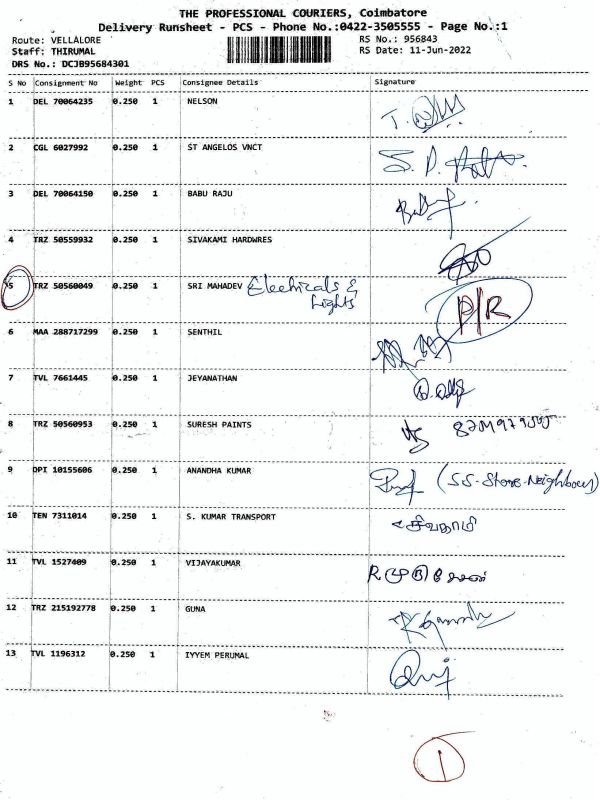 THE PROFESSIONAL COURIERS, Coimbatore
Delivery Runsheet - PCS - Phone No.:0422-3505555 - Page No.:1
Route: VELLALORE RS No.: 956843
Staff: THIRUMAL RS Date: 11-Jun-2022
DRS No.: DCJB95684301
S No Consignment No Weight PCS Consignee Details Signature
1 DEL 70064235 0.250 1 NELSON
2 CGL 6027992 0.250 1 ST ANGELOS VNCT
3 DEL 70064150 0.250 1 BABU RAJU
4 TRZ 50559932 0.250 1 SIVAKAMI HARDWRES
5 TRZ 50560049 0.250 1 SRI MAHADEV Electricals &
Lights
P/R
6 MAA 288717299 0.250 1 SENTHIL
7 TVL 7661445 0.250 1 JEYANATHAN
8 TRZ 50560953 0.250 1 SURESH PAINTS
9 OPI 10155606 0.250 1 ANANDHA KUMAR (SS-Store-Neighbour)
10 TEN 7311014 0.250 1 S. KUMAR TRANSPORT சிவகாமி
11 TVL 1527409 0.250 1 VIJAYAKUMAR
12 TRZ 215192778 0.250 1 GUNA
13 TVL 1196312 0.250 1 IYYEM PERUMAL
1